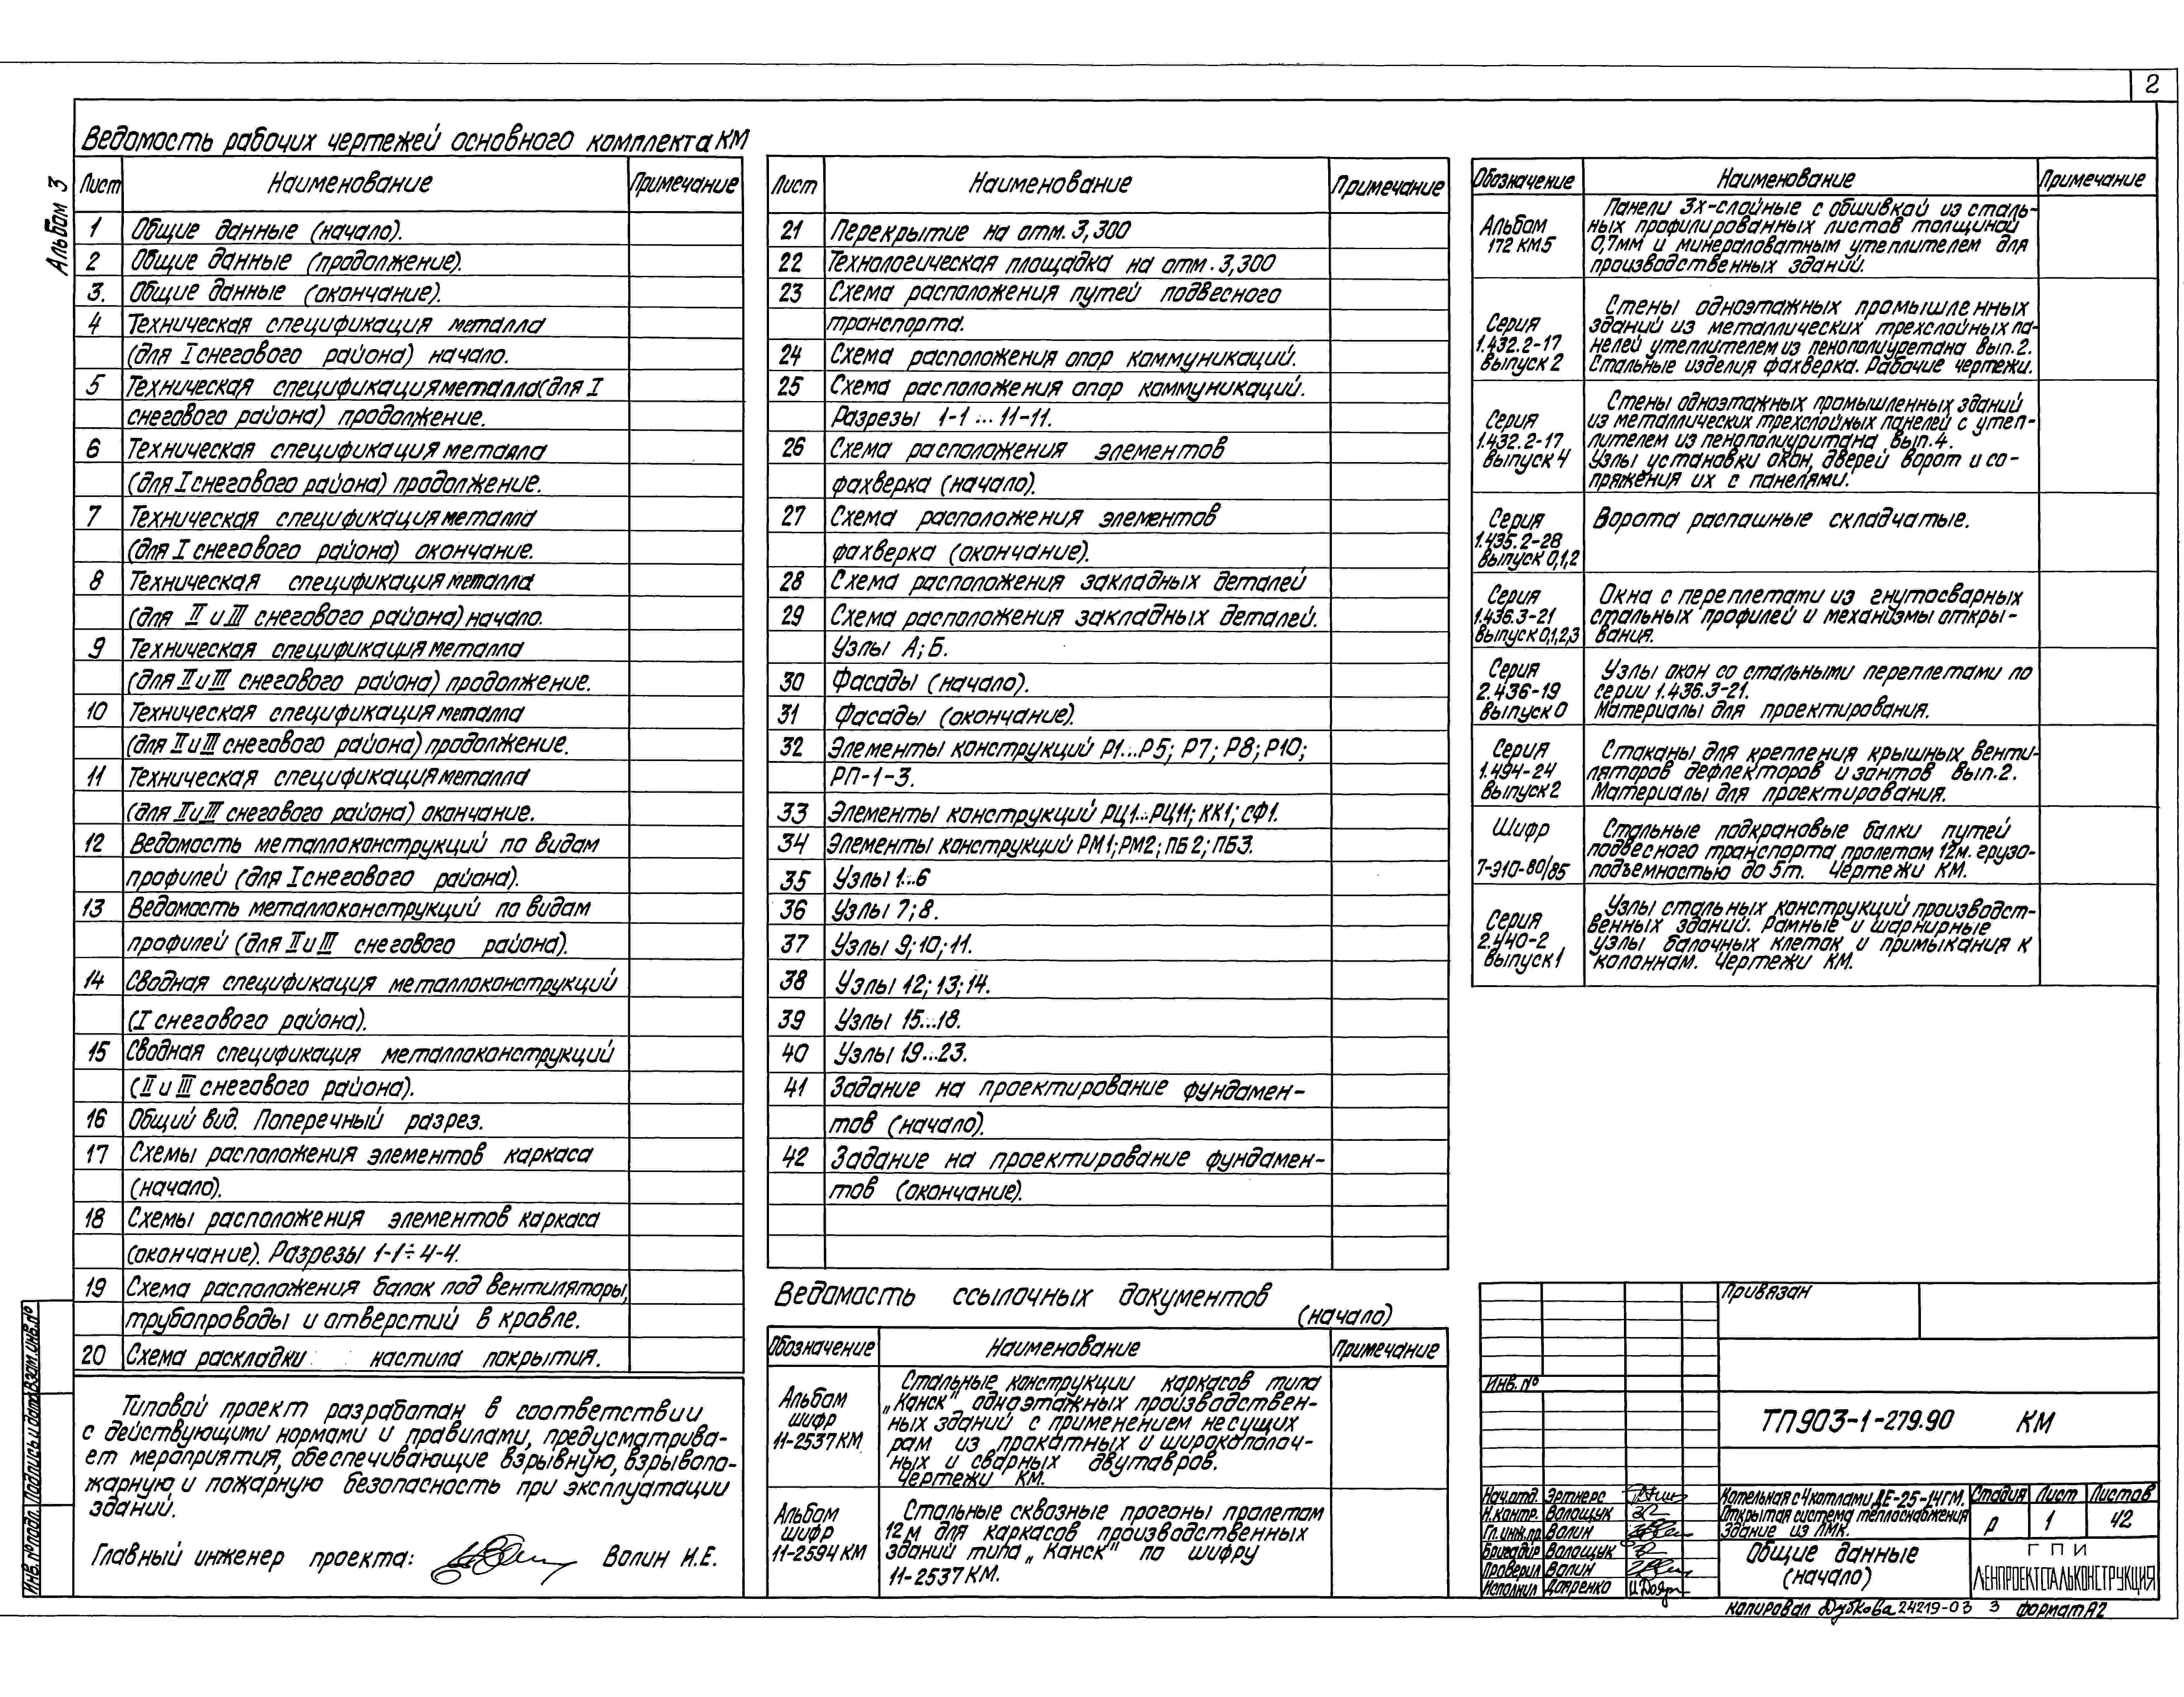 2
Альбом 3
Ведомость рабочих чертежей основного комплекта КМ
Лист Наименование Примечание
1 Общие данные (начало).
2 Общие данные (продолжение).
3. Общие данные (окончание).
4 Техническая спецификация металла
(для I снегового района) начало.
5 Техническая спецификация металла (для I
снегового района) продолжение.
6 Техническая спецификация металла
(для I снегового района) продолжение.
7 Техническая спецификация металла
(для I снегового района) окончание.
8 Техническая спецификация металла
(для II и III снегового района) начало.
9 Техническая спецификация металла
(для II и III снегового района) продолжение.
10 Техническая спецификация металла
(для II и III снегового района) продолжение.
11 Техническая спецификация металла
(для II и III снегового района) окончание.
12 Ведомость металлоконструкций по видам
профилей (для I снегового района).
13 Ведомость металлоконструкций по видам
профилей (для II и III снегового района).
14 Сводная спецификация металлоконструкций
(I снегового района).
15 Сводная спецификация металлоконструкций
(II и III снегового района).
16 Общий вид. Поперечный разрез.
17 Схемы расположения элементов каркаса
(начало).
18 Схемы расположения элементов каркаса
(окончание). Разрезы 1-1÷4-4.
19 Схема расположения балок под вентиляторы,
трубопроводы и отверстий в кровле.
20 Схема раскладки настила покрытия.
Типовой проект разработан в соответствии
с действующими нормами и правилами, предусматрива-
ет мероприятия, обеспечивающие взрывную, взрывопо-
жарную и пожарную безопасность при эксплуатации
зданий.
Главный инженер проекта: Волин И.Е.
Лист Наименование Примечание
21 Перекрытие на отм. 3,300
22 Технологическая площадка на отм. 3,300
23 Схема расположения путей подвесного
транспорта.
24 Схема расположения опор коммуникаций.
25 Схема расположения опор коммуникаций.
Разрезы 1-1 ... 11-11.
26 Схема расположения элементов
фахверка (начало).
27 Схема расположения элементов
фахверка (окончание).
28 Схема расположения закладных деталей
29 Схема расположения закладных деталей.
Узлы А; Б.
30 Фасады (начало).
31 Фасады (окончание).
32 Элементы конструкций Р1...Р5; Р7; Р8; Р10;
РП-1-3.
33 Элементы конструкций РЦ1...РЦ11; КК1; СФ1.
34 Элементы конструкций РМ1; РМ2; ПБ2; ПБ3.
35 Узлы 1...6
36 Узлы 7; 8.
37 Узлы 9; 10; 11.
38 Узлы 12; 13; 14.
39 Узлы 15...18.
40 Узлы 19...23.
41 Задание на проектирование фундамен-
тов (начало).
42 Задание на проектирование фундамен-
тов (окончание).
Ведомость ссылочных документов
(начало)
Обозначение Наименование Примечание
Альбом шифр 11-2537 КМ
Стальные конструкции каркасов типа
„Канск" одноэтажных производствен-
ных зданий с применением несущих
рам из прокатных и широкополоч-
ных и сварных двутавров.
Чертежи КМ.
Альбом шифр 11-2594 КМ
Стальные сквозные прогоны пролетом
12 м для каркасов производственных
зданий типа „Канск" по шифру
11-2537 КМ.
Обозначение Наименование Примечание
Альбом 172 КМ5
Панели 3х-слойные с обшивкой из сталь-
ных профилированных листов толщиной
0,7мм и минераловатным утеплителем для
производственных зданий.
Серия 1.432.2-17 Выпуск 2
Стены одноэтажных промышленных
зданий из металлических трехслойных па-
нелей утеплителем из пенополиуретана вып.2.
Стальные изделия фахверка. Рабочие чертежи.
Серия 1.432.2-17 Выпуск 4
Стены одноэтажных промышленных зданий
из металлических трехслойных панелей с утеп-
лителем из пенополиуритана вып.4.
Узлы установки окон, дверей ворот и со-
пряжения их с панелями.
Серия 1.435.2-28 Выпуск 0,1,2
Ворота распашные складчатые.
Серия 1.436.3-21 Выпуск 0,1,2,3
Окна с переплетами из гнутосварных
стальных профилей и механизмы откры-
вания.
Серия 2.436-19 Выпуск 0
Узлы окон со стальными переплетами по
серии 1.436.3-21.
Материалы для проектирования.
Серия 1.494-24 Выпуск 2
Стаканы для крепления крышных венти-
ляторов дефлекторов и зонтов вып.2.
Материалы для проектирования.
Шифр 7-ЭЛО-80/85
Стальные подкрановые балки путей
подвесного транспорта пролетом 12м. грузо-
подъемностью до 5т. Чертежи КМ.
Серия 2.440-2 Выпуск 1
Узлы стальных конструкций производст-
венных зданий. Рамные и шарнирные
узлы балочных клеток и примыкания к
колоннам. Чертежи КМ.
Привязан
ИНВ. №
ТП 903-1-279.90 КМ
Нач.отд. Эртнерс
Н.контр. Волощук
Гл.инж.пр. Волин
Бригадир Волощук
Проверил Волин
Исполнил Дояренко
Котельная с 4 котлами ДЕ-25-14ГМ.
Открытая система теплоснабжения
Здание из ЛМК.
Стадия Лист Листов
Р 1 42
Общие данные
(начало)
ГПИ
ЛЕНПРОЕКТСТАЛЬКОНСТРУКЦИЯ
Копировал Дубкова 24219-03 3 Формат А2
Инв. № подл. Подпись и дата Взам. инв. №